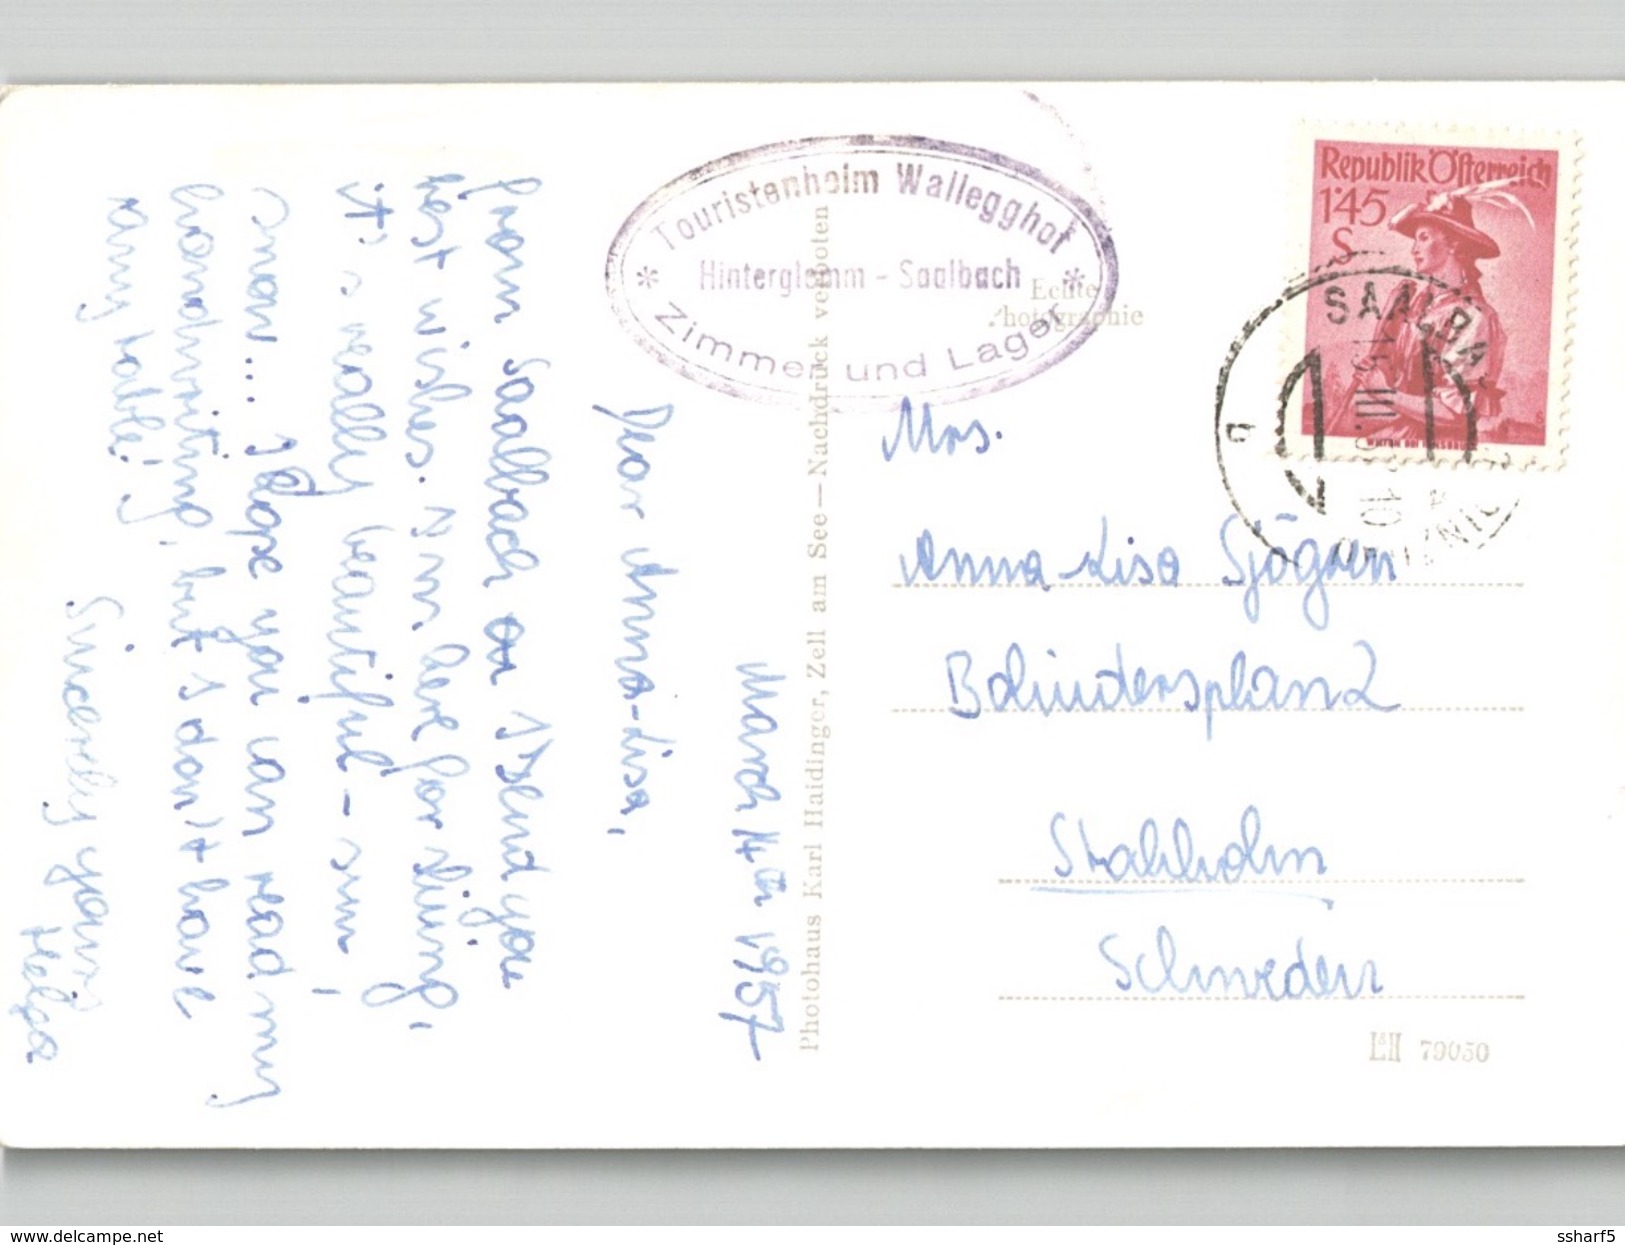 March 14th 1957
Dear Anna-Lisa,
from Saalbach I send you
best wishes. I'm here for skiing,
it's really beautiful - sun,
snow... I hope you can read my
handwriting, but I don't have
any table!
Sincerely yours
Helga
Touristenheim Wallegghof
Hinterglemm - Saalbach
Zimmer und Lager
Echte
Photographie
Photohaus Karl Haidinger, Zell am See—Nachdruck verboten
Republik Österreich
1'45
S
SAALBA
10
Mrs.
Anna-Lisa Sjögren
Bolindersplan 2
Stockholm
Schweden
79050
ssharf5
www.delcampe.net